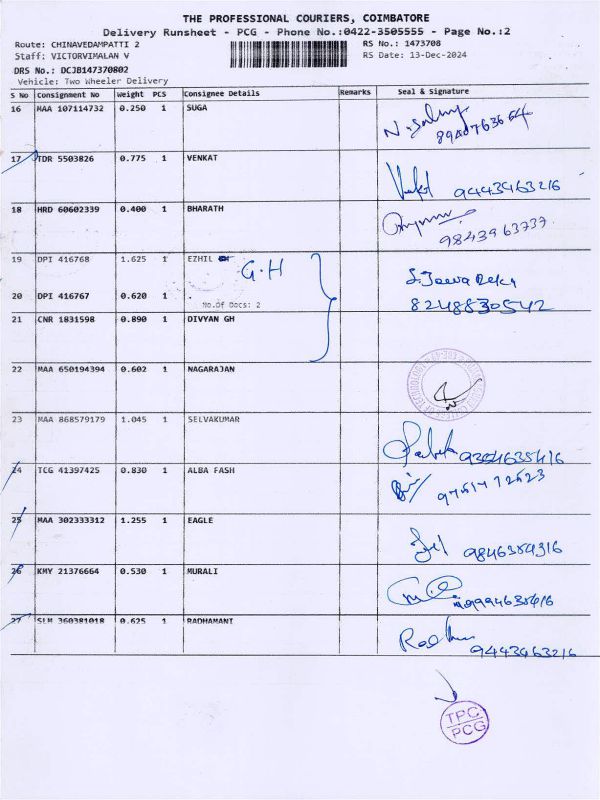 THE PROFESSIONAL COURIERS, COIMBATORE
Delivery Runsheet - PCG - Phone No.:0422-3505555 - Page No.:2
Route: CHINAVEDAMPATTI 2 RS No.: 1473708
Staff: VICTORVIMALAN V RS Date: 13-Dec-2024
DRS No.: DCJB147370802
Vehicle: Two Wheeler Delivery
S No Consignment No Weight PCS Consignee Details Remarks Seal & Signature
16 MAA 107114732 0.250 1 SUGA
17 TDR 5503826 0.775 1 VENKAT
9443463216
18 HRD 60602339 0.400 1 BHARATH
9843963737
19 DPI 416768 1.625 1 EZHIL
G.H
20 DPI 416767 0.620 1
No.Of Docs: 2
8248830542
21 CNR 1831598 0.890 1 DIVYAN GH
22 MAA 650194394 0.602 1 NAGARAJAN
23 MAA 868579179 1.045 1 SELVAKUMAR
24 TCG 41397425 0.830 1 ALBA FASH
25 MAA 302333312 1.255 1 EAGLE
26 KMY 21376664 0.530 1 MURALI
27 SLM 360381018 0.625 1 RADHAMANI
9443463216
TPC
PCG